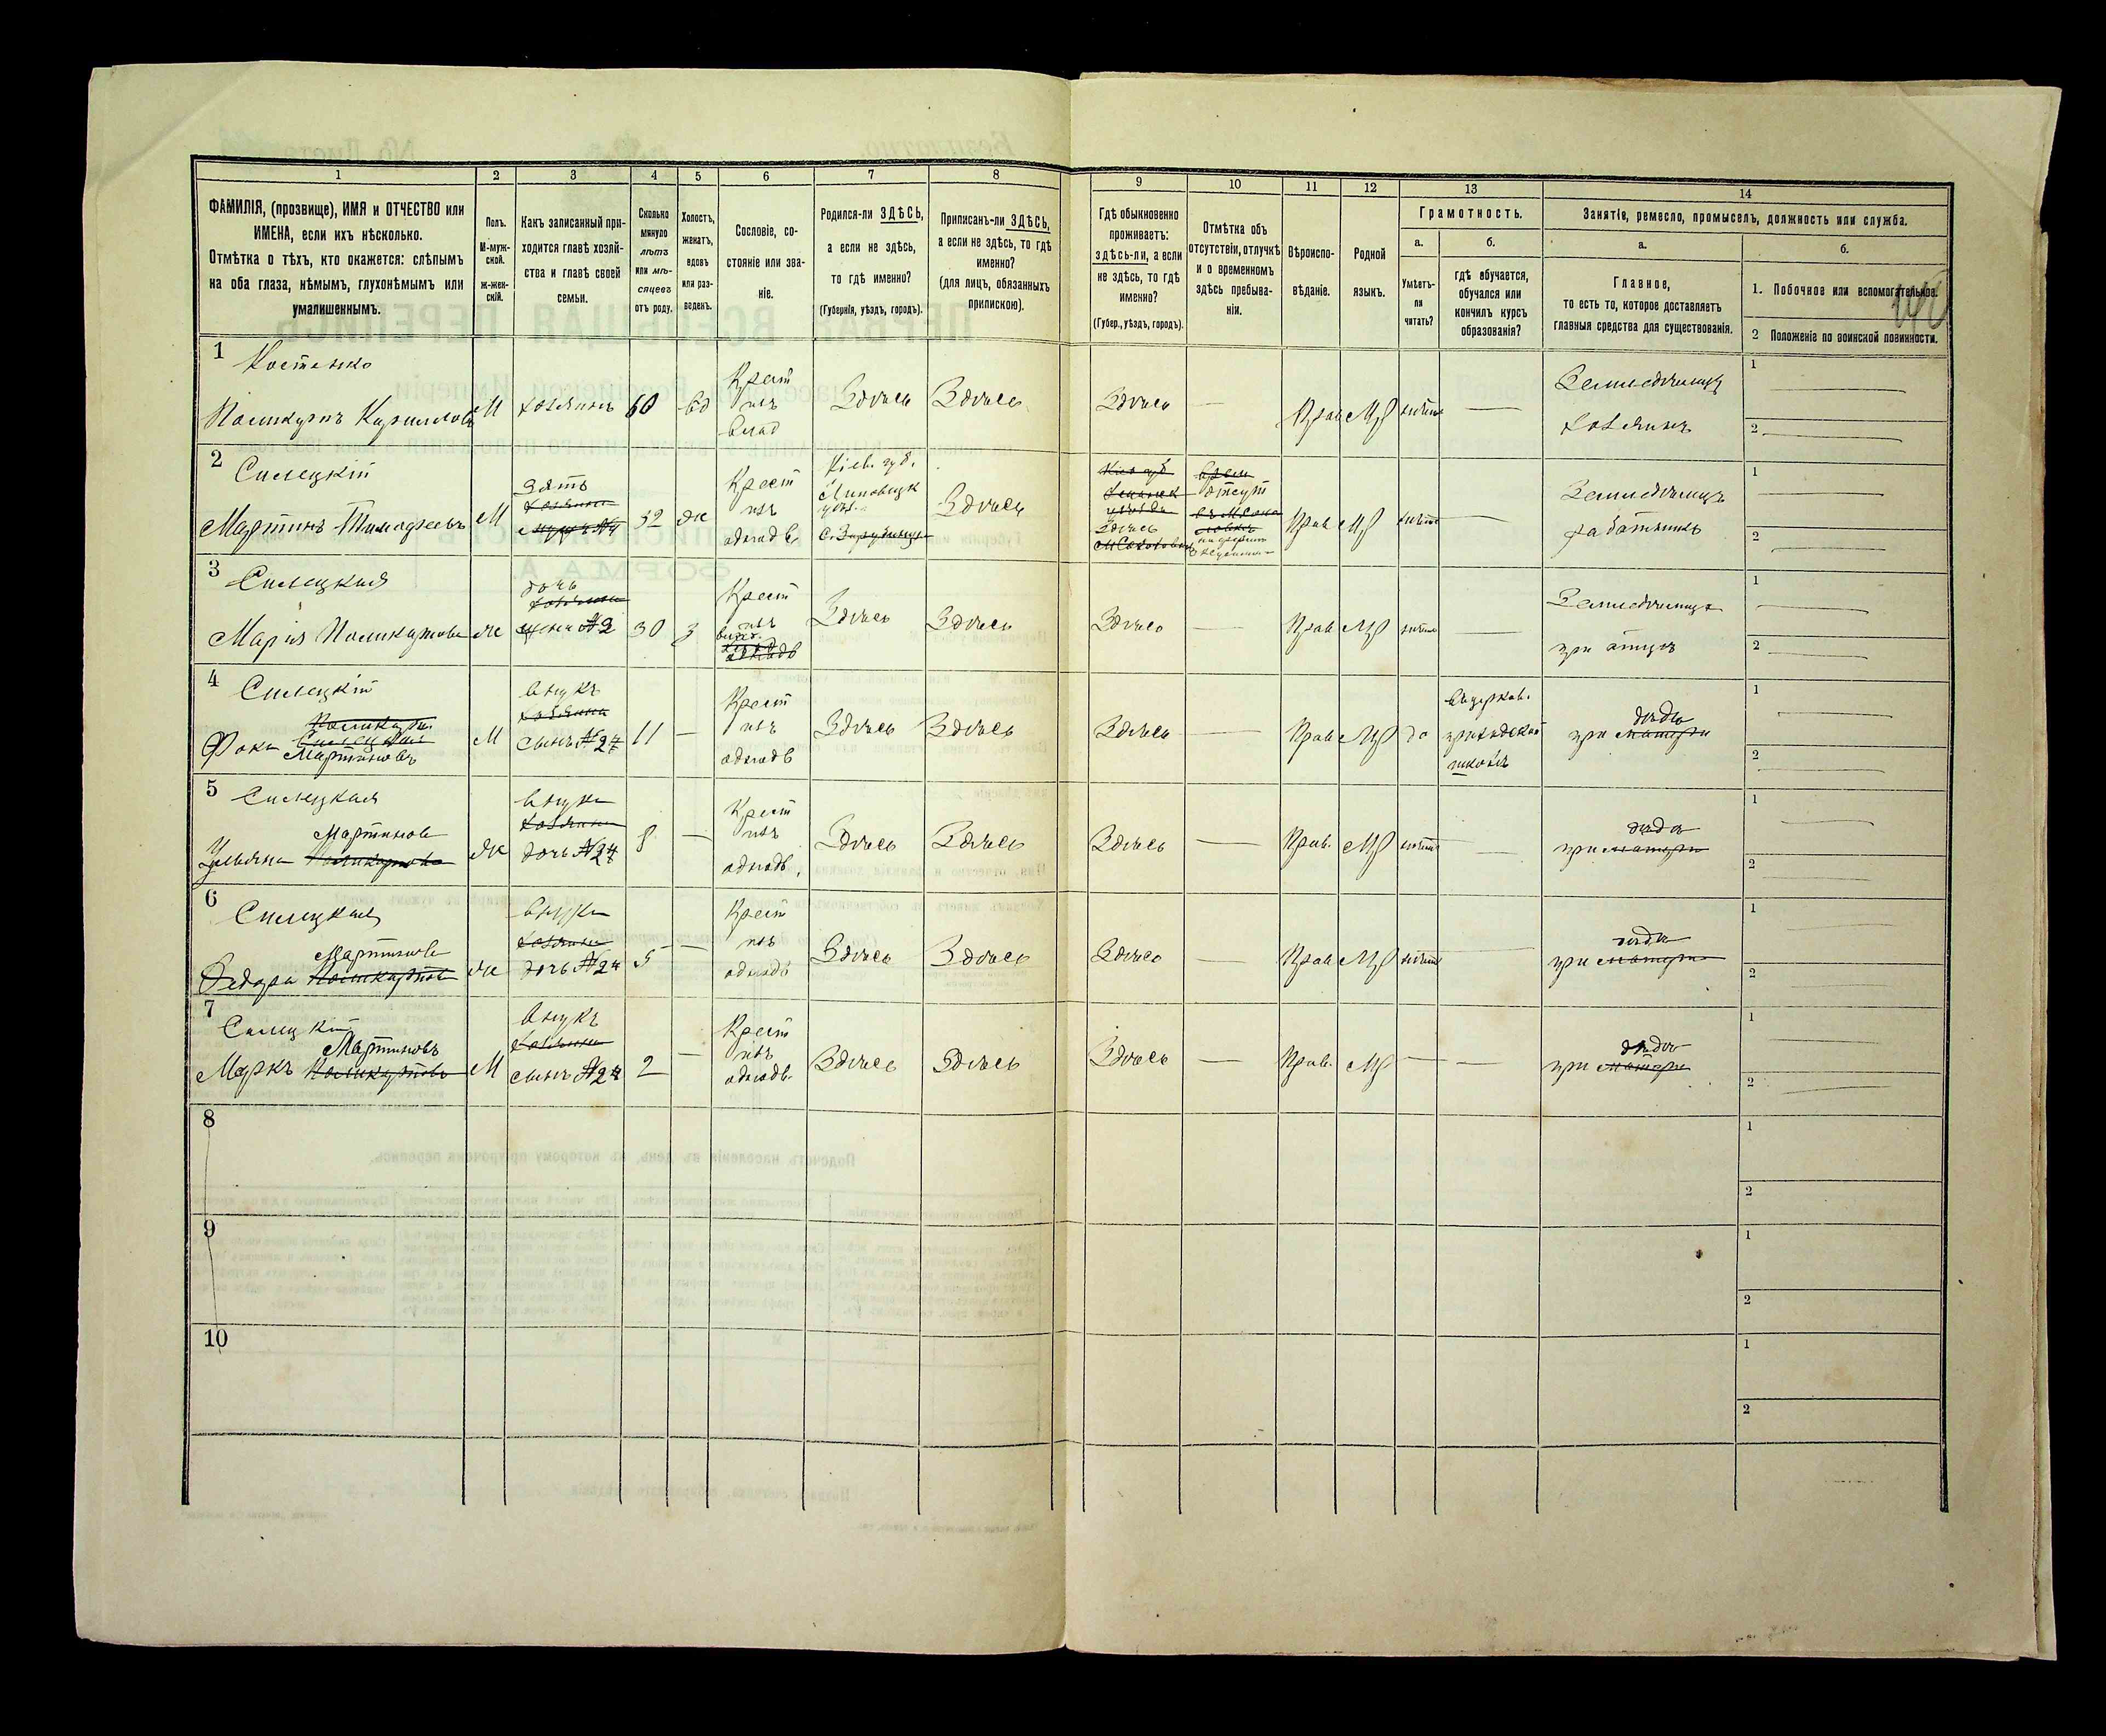 1 2 3 4 5 6 7 8 9 10 11 12 13 14
ФАМИЛІЯ, (прозвище), ИМЯ и ОТЧЕСТВО или
ИМЕНА, если ихъ нѣсколько.
Отмѣтка о тѣхъ, кто окажется: слѣпымъ
на оба глаза, нѣмымъ, глухонѣмымъ или
умалишеннымъ.
Полъ.
М-муж-
ской.
ж-жен-
скій.
Какъ записанный при-
ходится главѣ хозяй-
ства и главѣ своей
семьи.
Сколько
минуло
лѣтъ
или мѣ-
сяцевъ
отъ роду.
Холостъ,
женатъ,
вдовъ
или раз-
веденъ.
Сословіе, со-
стояніе или зва-
ніе.
Родился-ли ЗДѢСЬ,
а если не здѣсь,
то гдѣ именно?
(Губернія, уѣздъ, городъ).
Приписанъ-ли ЗДѢСЬ,
а если не здѣсь, то гдѣ
именно?
(для лицъ, обязанныхъ
припискою).
Гдѣ обыкновенно
проживаетъ:
здѣсь-ли, а если
не здѣсь, то гдѣ
именно?
(Губер., уѣздъ, городъ).
Отмѣтка объ
отсутствіи, отлучкѣ
и о временномъ
здѣсь пребыва-
ніи.
Вѣроиспо-
вѣданіе.
Родной
языкъ.
Грамотность.
а.
Умѣетъ-
ли
читать?
б.
гдѣ обучается,
обучался или
кончилъ курсъ
образованія?
Занятіе, ремесло, промыселъ, должность или служба.
а.
Главное,
то есть то, которое доставляетъ
главныя средства для существованія.
б.
1. Побочное или вспомогательное.
2 Положеніе по воинской повинности.
1
Костенко
Поликарпъ Кирилловъ
М
хозяинъ
60
вд
Крест
изъ
влад
Здѣсь
Здѣсь
Здѣсь
Прав
МР
нѣтъ
Земледѣлецъ
хозяинъ
1
2
2
Силецкій
Мартинъ Тимофеевъ
М
Зять
хозяина
32
ж
Крест
изъ
однодв.
Кіев. губ.
Липовецк
уѣз.
Здѣсь
Здѣсь
отсут
Прав
МР
нѣтъ
Земледѣлецъ
работникъ
1
2
3
Силецкая
Марія Поликарпова
ж
дочь
хозяина
жена №2
30
з
Крест
изъ
влад.
однодв
Здѣсь
Здѣсь
Здѣсь
Прав
МР
нѣтъ
Земледѣлица
при отцѣ
1
2
4
Силецкій
Фока
Мартиновъ
М
внукъ
хозяина
сынъ №2
11
Крест
изъ
однодв
Здѣсь
Здѣсь
Здѣсь
Прав
МР
да
въ церков.
приходской
школѣ
дѣдѣ
при матери
1
2
5
Силецкая
Мартинова
Ульяна Поликарпова
ж
внука
хозяина
дочь №2
8
Крест
изъ
однодв.
Здѣсь
Здѣсь
Здѣсь
Прав.
МР
нѣтъ
дѣдѣ
при матери
1
2
6
Силецкая
Мартинова
Федора Поликарпова
ж
внука
хозяина
дочь №2
5
Крест
изъ
однодв
Здѣсь
Здѣсь
Здѣсь
Прав
МР
нѣтъ
дѣдѣ
при матери
1
2
7
Силецкій
Мартиновъ
Маркъ Поликарповъ
М
внукъ
хозяина
сынъ №2
2
Крест
изъ
однодв.
Здѣсь
Здѣсь
Здѣсь
Прав.
МР
дѣдѣ
при матери
1
2
8
1
2
9
1
2
10
1
2